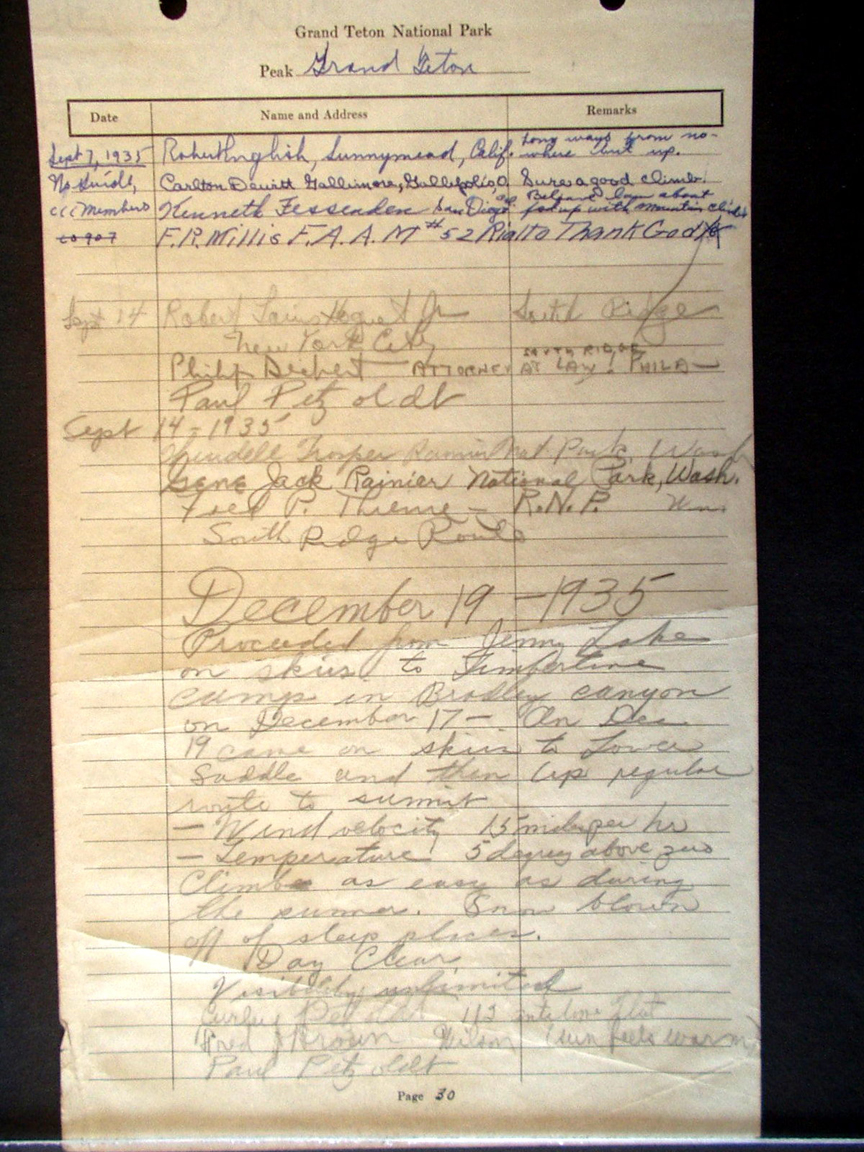 Grand Teton National Park
Peak Grand Teton
Date Name and Address Remarks
Sept 7, 1935 Robert English, Sunnymead, Calif. Long ways from no-
where but up.
No Guide, Carlton Dewitt Gallimore, Gallipolis, O. Sure a good climb.
CCC Members Kenneth Fessenden San Diego about
fed up with mountain
co 907 F.P. Willis F.A.A.M #52 Rialto Thank God
Sept 14 Robert Jr South Ridge
New York City
SOUTH RIDGE
Philip ATTORNEY AT LAW. PHILA
Paul Petzoldt
Sept 14-1935
Wendell Trosper Nat Park, Wash
Gene Jack Rainier National Park, Wash.
Fred P. Thieme - R.N.P. Wn.
South Ridge Route
December 19 - 1935
Proceeded from Jenny Lake
on skiis to Timberline
camp in Bradley canyon
on December 17 - On Dec
19 came on skiis to Lower
Saddle and then up regular
route to summit
- Wind velocity 15 miles per hr
- Temperature 5 degrees above zero
Climb as easy as during
the summer. Snow blown
off of steep places.
Day Clear
Visibility unlimited
Curley Petzoldt antelope flat
Fred Brown Wilson (sun feels warm)
Paul Petzoldt
Page 30